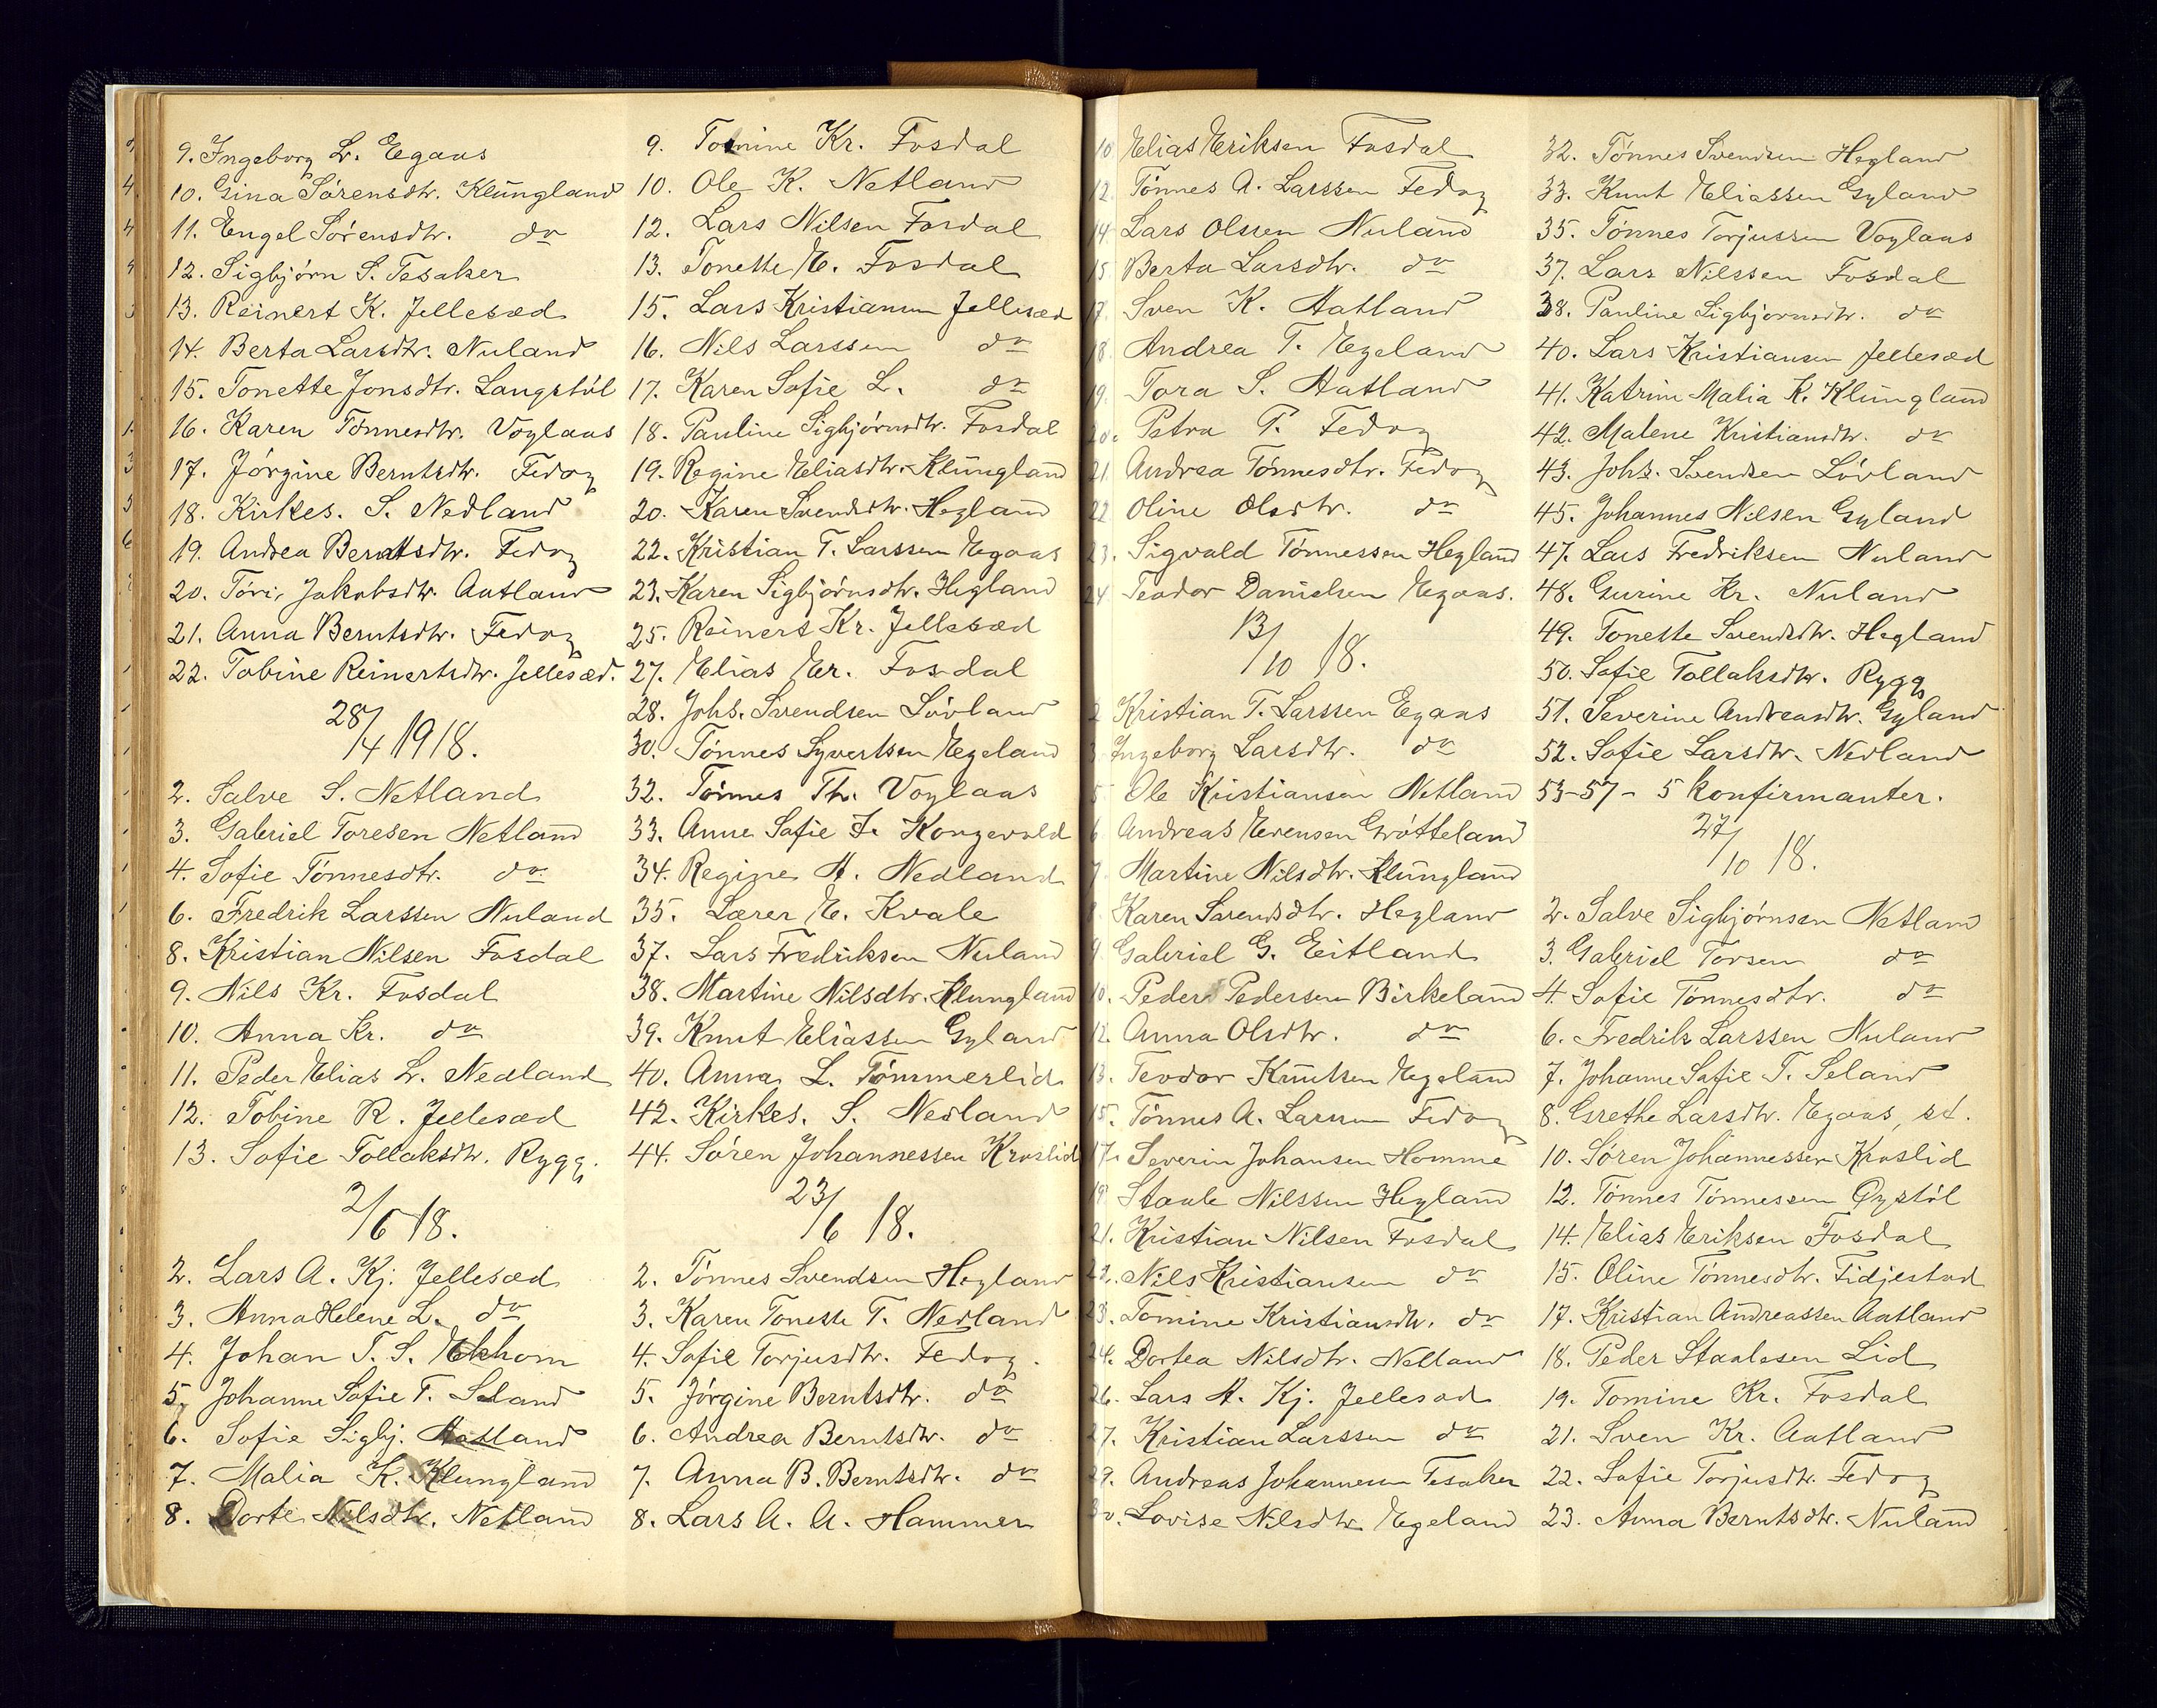 9. Ingeborg L. Egaas
10. Gina Sørensdtr. Klungland
11. Engel Sørensdtr. do
12. Sigbjørn S. Tesaker
13. Reinert K. Jellesæd
14. Berta Larsdtr. Nuland
15. Tonette Jonsdtr. Langstøl
16. Karen Tønnesdtr. Voglaas
17. Jørgine Berntsdtr. Fedog
18. Kirkes. S. Nedland
19. Andrea Berntsdtr. Fedog
20. Tori Jakobsdtr. Aatland
21. Anna Berntsdtr. Fedog
22. Tobine Reinertsdtr. Jellesæd.
28/4 1918.
2. Salve S. Netland
3. Gabriel Toresen Netland
4. Sofie Tønnesdtr. do
6. Fredrik Larssen Nuland
8. Kristian Nilsen Fosdal
9. Nils Kr. Fosdal
10. Anna Kr. do
11. Peder Elias L. Nedland
12. Tobine R. Jellesæd
13. Sofie Tollaksdtr. Rygg.
2/6 18.
2. Lars A. Kj. Jellesæd
3. Anna Helene L. do
4. Johan T. S. Ekhom
5. Johanne Sofie T. Seland
6. Sofie Sigbj. Hatland
7. Malia K. Klungland
8. Dorte Nilsdtr. Netland
9. Tomine Kr. Fosdal
10. Ole K. Netland
12. Lars Nilsen Fosdal
13. Tonette E. Fosdal
15. Lars Kristiansen Jellesæd
16. Nils Larssen do
17. Karen Sofie L. do
18. Pauline Sigbjørnsdtr. Fosdal
19. Regine Eliasdtr. Klungland
20. Karen Svendsdtr. Hegland
22. Kristian T. Larssen Egaas
23. Karen Sigbjørnsdtr. Hegland
25. Reinert Kr. Jellesæd
27. Elias Er. Fosdal
28. Johs. Svendsen Løvland
30. Tønnes Syvertsen Egeland
32. Tønnes Th. Voglaas
33. Anne Sofie J. Kongevold
34. Regine A. Nedland
35. Lærer E. Kvale
37. Lars Fredriksen Nuland
38. Martine Nilsdtr. Klungland
39. Knut Eliassen Gyland
40. Anna L. Tømmerlid
42. Kirkes. S. Nedland
44. Søren Johannessen Kroslid
23/6 18.
2. Tønnes Svendsen Hegland
3. Karen Tonette T. Nedland
4. Sofie Torjusdtr. Fedog.
5. Jørgine Berntsdtr. do
6. Andrea Berntsdtr. do
7. Anna B. Berntsdtr. do
8. Lars A. A. Hammer
10 Elias Eriksen Fosdal
12. Tønnes A. Larssen Fedog
14 Lars Olssen Nuland
15 Berta Larsdtr. do
17. Sven K. Hatland
18 Andrea T. Egeland
19. Tora S. Hatland
20. Petra T. Fedog
21. Andrea Tønnesdtr. Fedog
22 Oline Olsdtr. do
23. Sigvald Tønnessen Hegland
24 Teodor Danielsen Egaas.
13/10 18.
2 Kristian T. Larssen Egaas
3 Ingeborg Larsdtr. do
5 Ole Kristiansen Netland
6 Andreas Evensen Grøtteland
7 Martine Nilsdtr. Klungland
8 Karen Svendsdtr. Hegland
9 Gabriel G. Eitland
10. Peder Pedersen Birkeland
12. Anna Olsdtr. do
13. Teodor Knutsen Egeland
15. Tønnes A. Larssen Fedog
17. Severin Johansen Homme
19. Staale Nilssen Hegland
21. Kristian Nilsen Fosdal
22. Nils Kristiansen do
23. Tomine Kristiansdtr. do
24. Dortea Nilsdtr. Netland
26. Lars A. Kj. Jellesæd
27. Kristian Larssen do
29. Andreas Johannesen Tesaker
30. Lovise Nilsdtr. Egeland
32. Tønnes Svendsen Hegland
33. Knut Eliassen Gyland
35. Tønnes Torjussen Voglaas
37. Lars Nilssen Fosdal
38. Pauline Sigbjørnsdtr. do
40. Lars Kristiansen Jellesæd
41. Katrine Malia K. Klungland
42. Malene Kristiansdtr. do
43. Johs. Svendsen Løvland
45. Johannes Nilsen Gyland
47. Lars Fredriksen Nuland
48. Gurine Kr. Nuland
49. Tonette Svendsdtr. Hegland
50. Sofie Tollaksdtr. Rygg
51. Severine Andreasdtr. Gyland
52. Sofie Larsdtr. Nedland
53-57 - 5 konfirmanter.
27/10 18.
2. Salve Sigbjørnsen Netland
3. Gabriel Torsen do
4. Sofie Tønnesdtr. do
6. Fredrik Larssen Nuland
7. Johanne Sofie T. Seland
8. Grethe Larsdtr. Egaas,
10. Søren Johannessen Kroslid
12. Tønnes Tønnessen Øystøl
14. Elias Eriksen Fosdal
15. Oline Tønnesdtr. Fidjestad
17. Kristian Andreassen Aatland
18. Peder Staalesen Lid
19. Tomine Kr. Fosdal
21. Sven Kr. Aatland
22. Sofie Torjusdtr. Fedog
23. Anna Berntsdtr. Nuland